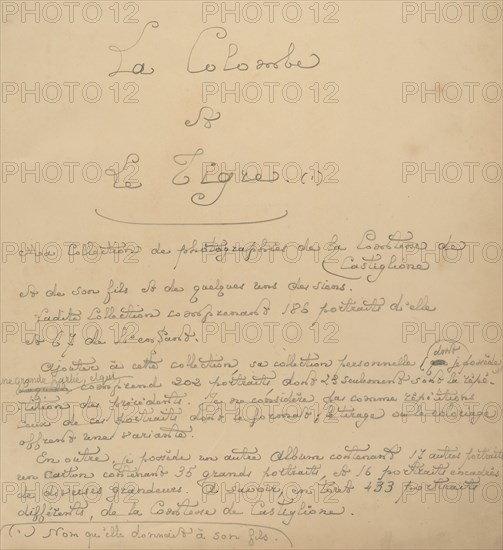 La Colombe
et
Le Tigre (1)
Ma Collection de photographies de la Comtesse de
Castiglione
et de son fils et de quelques uns des siens.
Ladite Collection comprenant 186 portraits d'elle
et 67 de l'enfant.
Ajouter à cette collection sa collection personnelle (dont je possède
une grande partie) et qui
comprend 202 portraits dont 22 seulement sont la répé-
tition des précédents. Je ne considère pas comme répétitions
ceux de ces portraits dont le format, le tirage ou le coloriage
offrent une variante.
En outre, je possède un autre Album contenant 17 autres portraits
un Carton contenant 35 grands portraits, et 16 portraits encadrés
de diverses grandeurs. A savoir, en tout 433 portraits
différents, de la Comtesse de Castiglione.
(1) Nom qu'elle donnait à son fils.
PHOTO 12